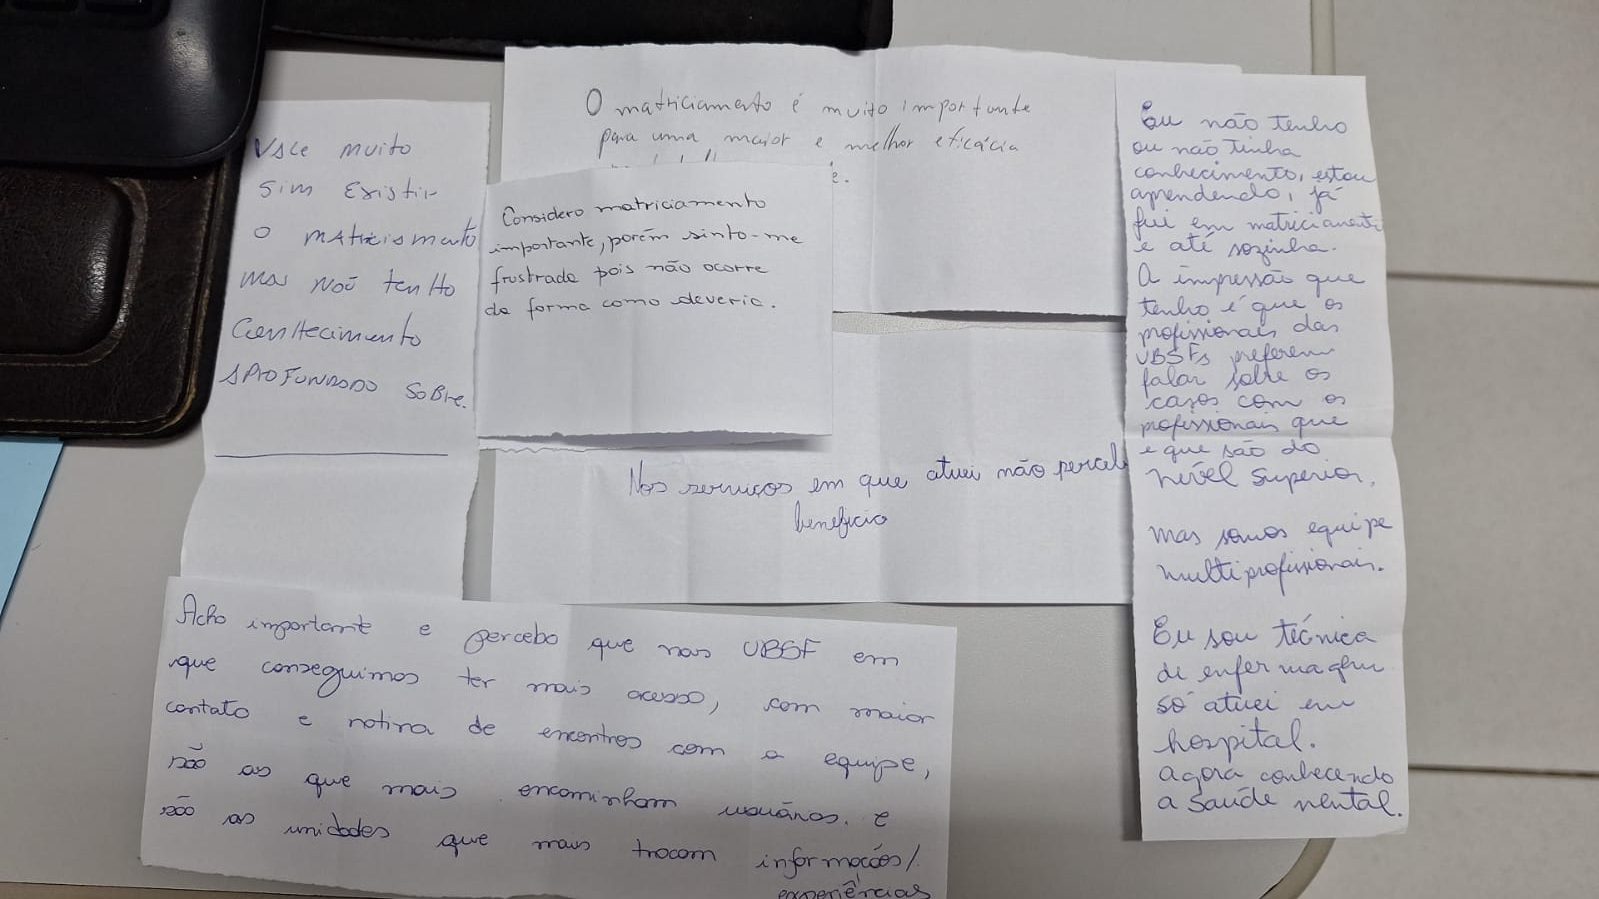 Vale muito
sim existir
o matriciamento
mas não tenho
conhecimento
aprofundado sobre.
O matriciamento é muito importante
para uma maior e melhor eficácia
Considero matriciamento
importante, porém sinto-me
frustrada pois não ocorre
da forma como deveria.
Nos serviços em que atuei não perceb
benefício
Acho importante e percebo que nas UBSF em
que conseguimos ter mais acesso, com maior
contato e rotina de encontros com a equipe,
são as que mais encaminham usuários. e
são as unidades que mais trocam informações/
experiências
Eu não tenho
ou não tinha
conhecimento, estou
aprendendo, já
fui em matriciamento
e até sozinha.
A impressão que
tenho é que os
profissionais das
UBSFs preferem
falar sobre os
casos com os
profissionais que
e que são do
nível superior,
mas somos equipe
multiprofissionais.
Eu sou técnica
de enfermagem
só atuei em
hospital.
agora conhecendo
a saúde mental.